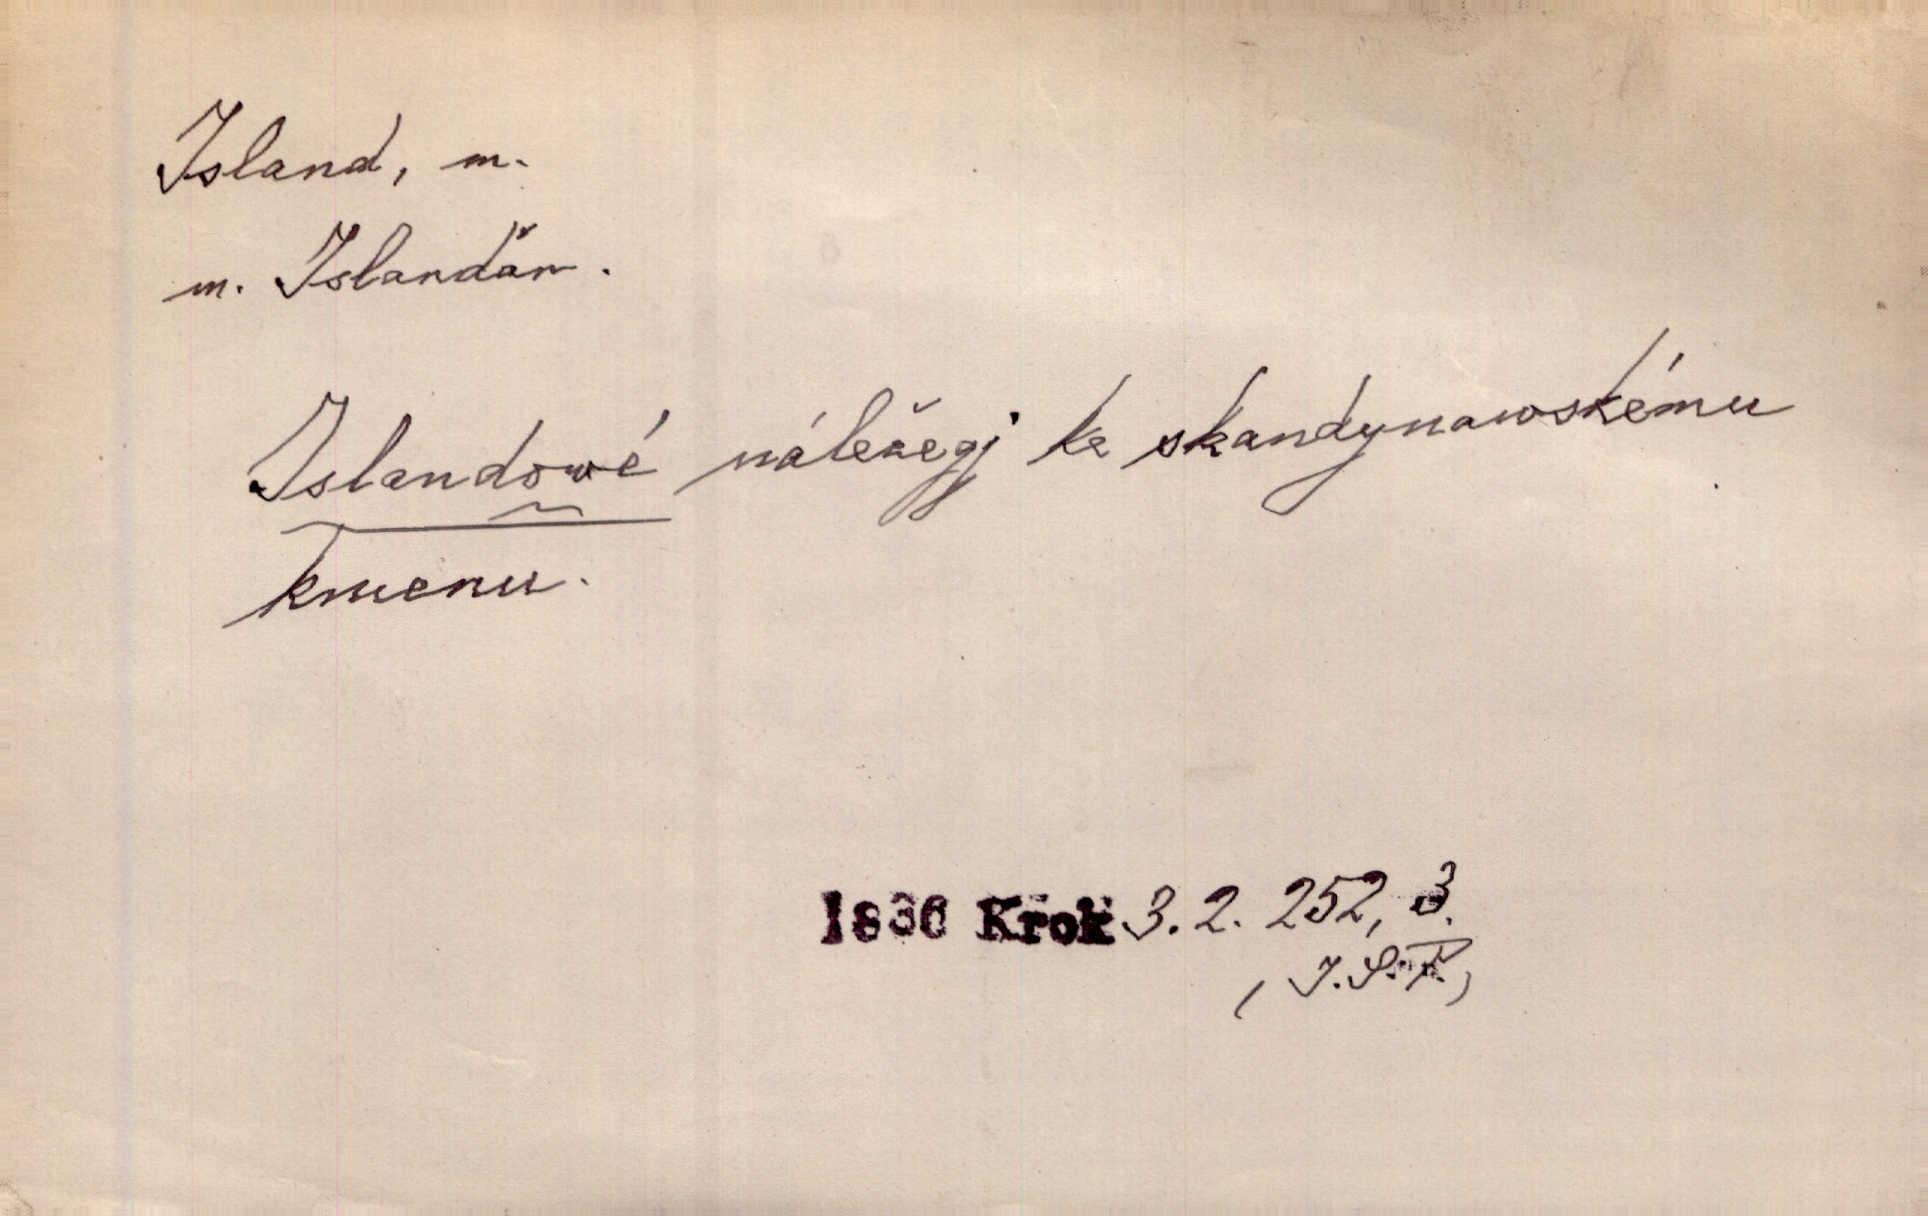 Island, m.
m. Islanďan.
Islandowé náležegj ke skandynawskému
kmenu.
1836 Krok 3. 2. 252, 3.